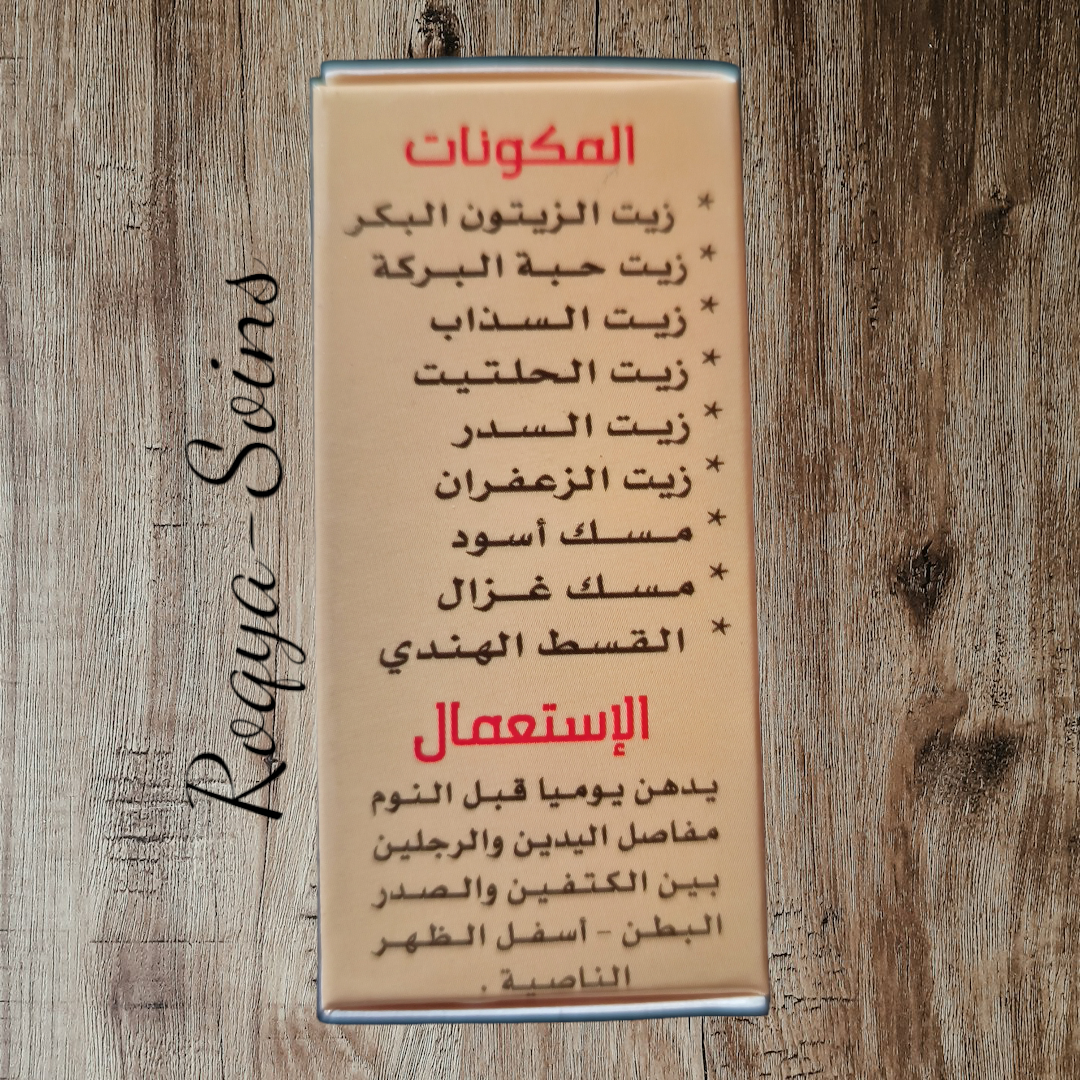 المكونات
* زيت الزيتون البكر
* زيت حبة البركة
* زيت السذاب
* زيت الحلتيت
* زيت السدر
* زيت الزعفران
* مسك أسود
* مسك غزال
* القسط الهندي
الإستعمال
يدهن يوميا قبل النوم
مفاصل اليدين والرجلين
بين الكتفين والصدر
البطن - أسفل الظهر
الناصية .
Roqya-Soins